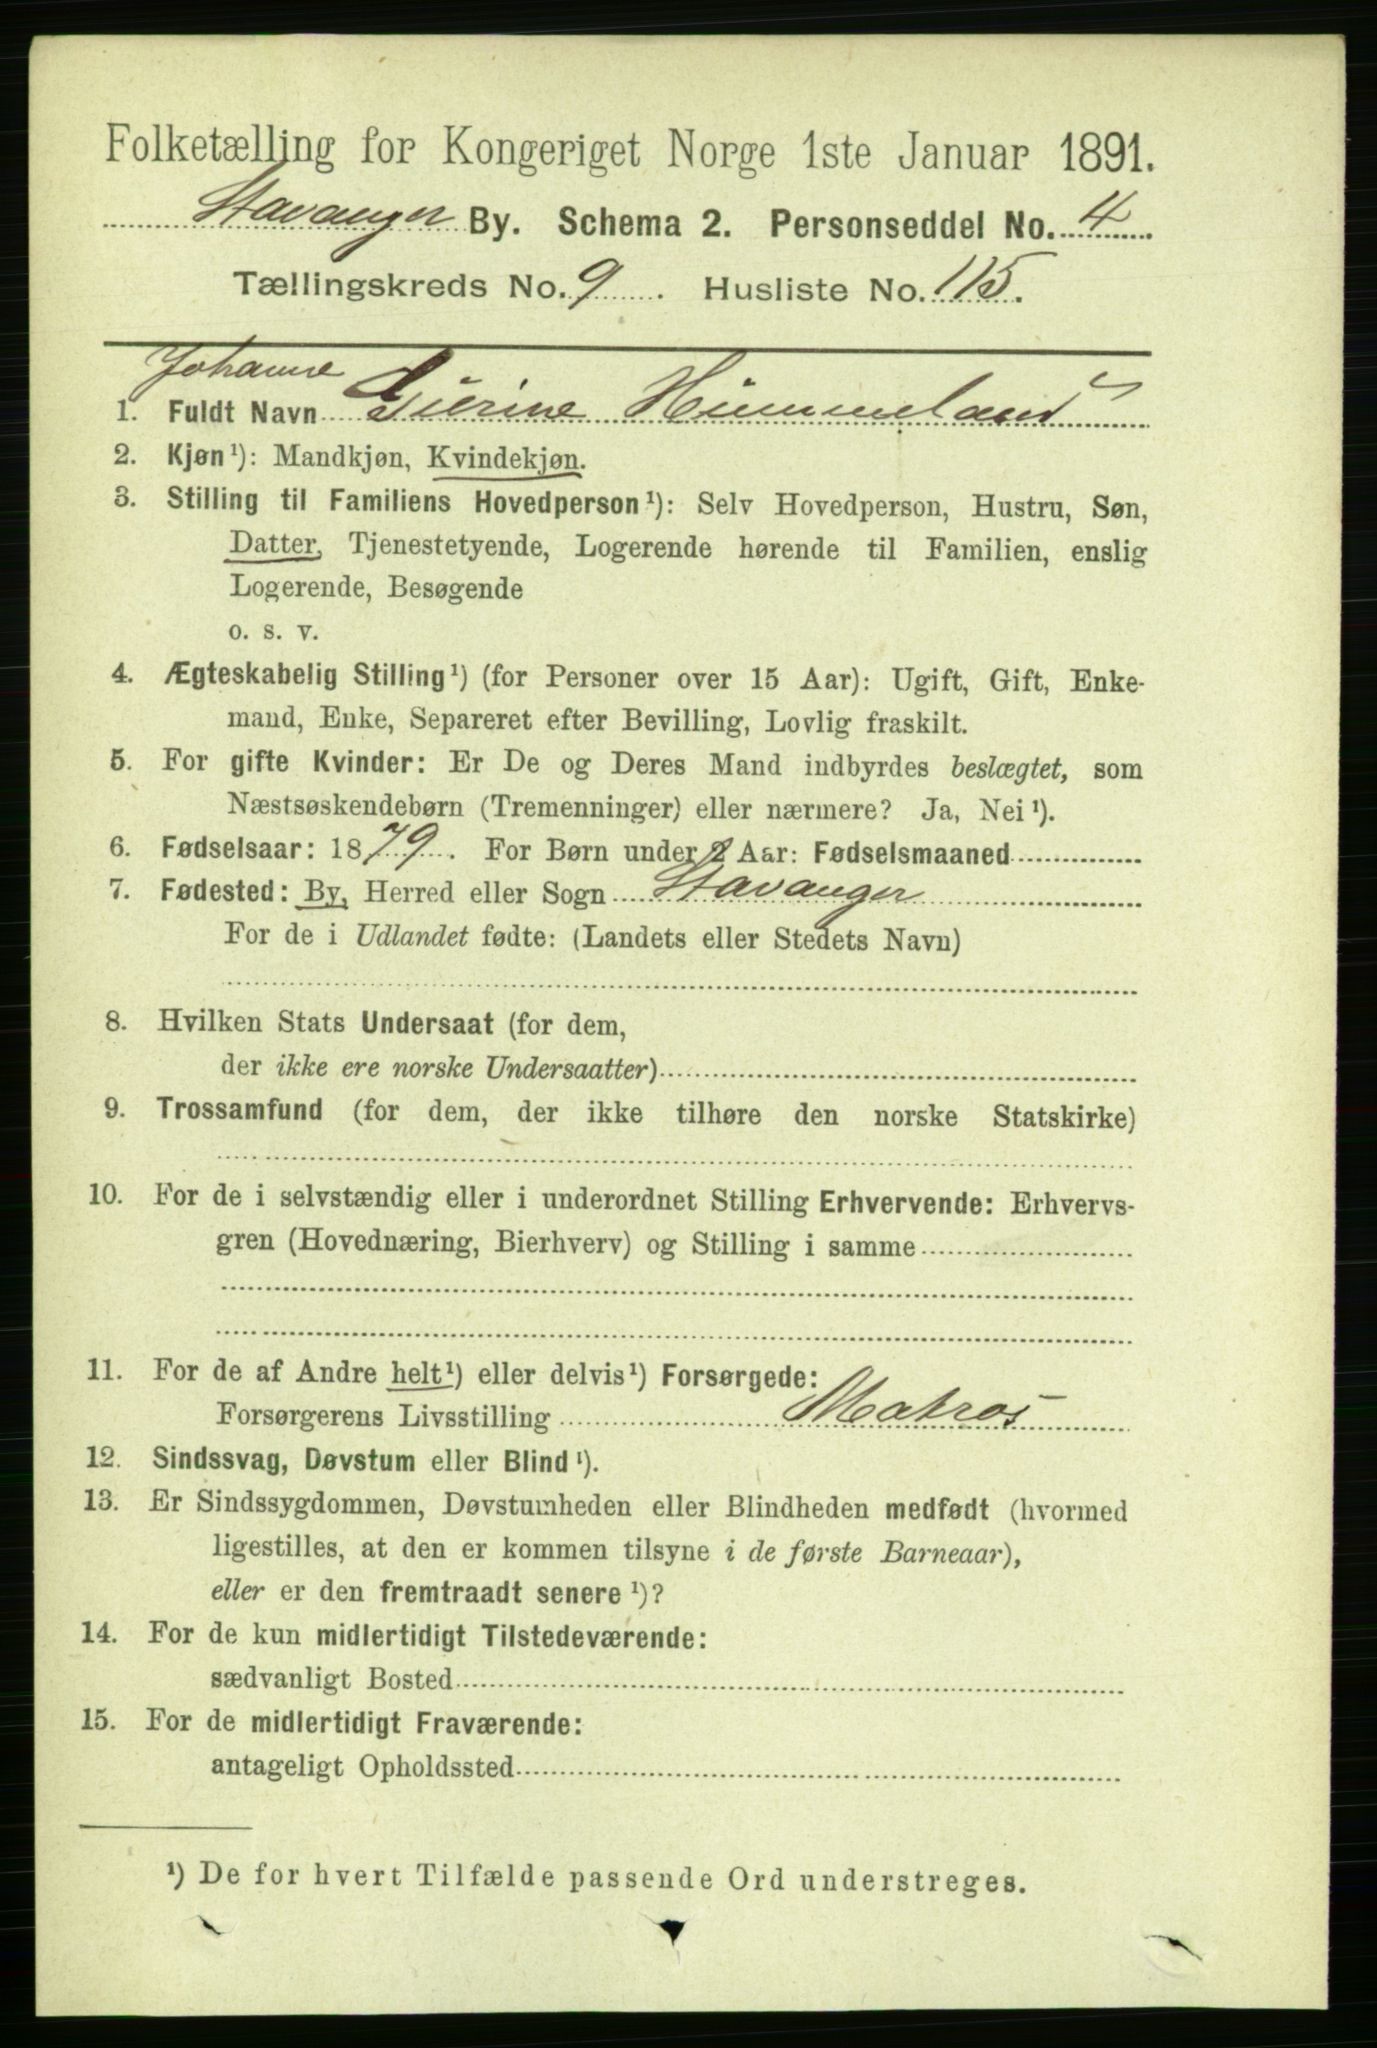 Folketælling for Kongeriget Norge 1ste Januar 1891.
Stavanger By. Schema 2. Personseddel No. 4
Tællingskreds No. 9. Husliste No. 115.
Johanne
1. Fuldt Navn Hummeland
2. Kjøn ¹): Mandkjøn, Kvindekjøn.
3. Stilling til Familiens Hovedperson ¹): Selv Hovedperson, Hustru, Søn,
Datter, Tjenestetyende, Logerende hørende til Familien, enslig
Logerende, Besøgende
o. s. v.
4. Ægteskabelig Stilling ¹) (for Personer over 15 Aar): Ugift, Gift, Enke-
mand, Enke, Separeret efter Bevilling, Lovlig fraskilt.
5. For gifte Kvinder: Er De og Deres Mand indbyrdes beslægtet, som
Næstsøskendebørn (Tremenninger) eller nærmere? Ja, Nei ¹).
6. Fødselsaar: 1879. For Børn under 2 Aar: Fødselsmaaned
7. Fødested: By, Herred eller Sogn Stavanger
For de i Udlandet fødte: (Landets eller Stedets Navn)
8. Hvilken Stats Undersaat (for dem,
der ikke ere norske Undersaatter)
9. Trossamfund (for dem, der ikke tilhøre den norske Statskirke)
10. For de i selvstændig eller i underordnet Stilling Erhvervende: Erhvervs-
gren (Hovednæring, Bierhverv) og Stilling i samme
11. For de af Andre helt ¹) eller delvis ¹) Forsørgede:
Forsørgerens Livsstilling Matros
12. Sindssvag, Døvstum eller Blind ¹).
13. Er Sindssygdommen, Døvstumheden eller Blindheden medfødt (hvormed
ligestilles, at den er kommen tilsyne i de første Barneaar),
eller er den fremtraadt senere ¹)?
14. For de kun midlertidigt Tilstedeværende:
sædvanligt Bosted
15. For de midlertidigt Fraværende:
antageligt Opholdssted
¹) De for hvert Tilfælde passende Ord understreges.